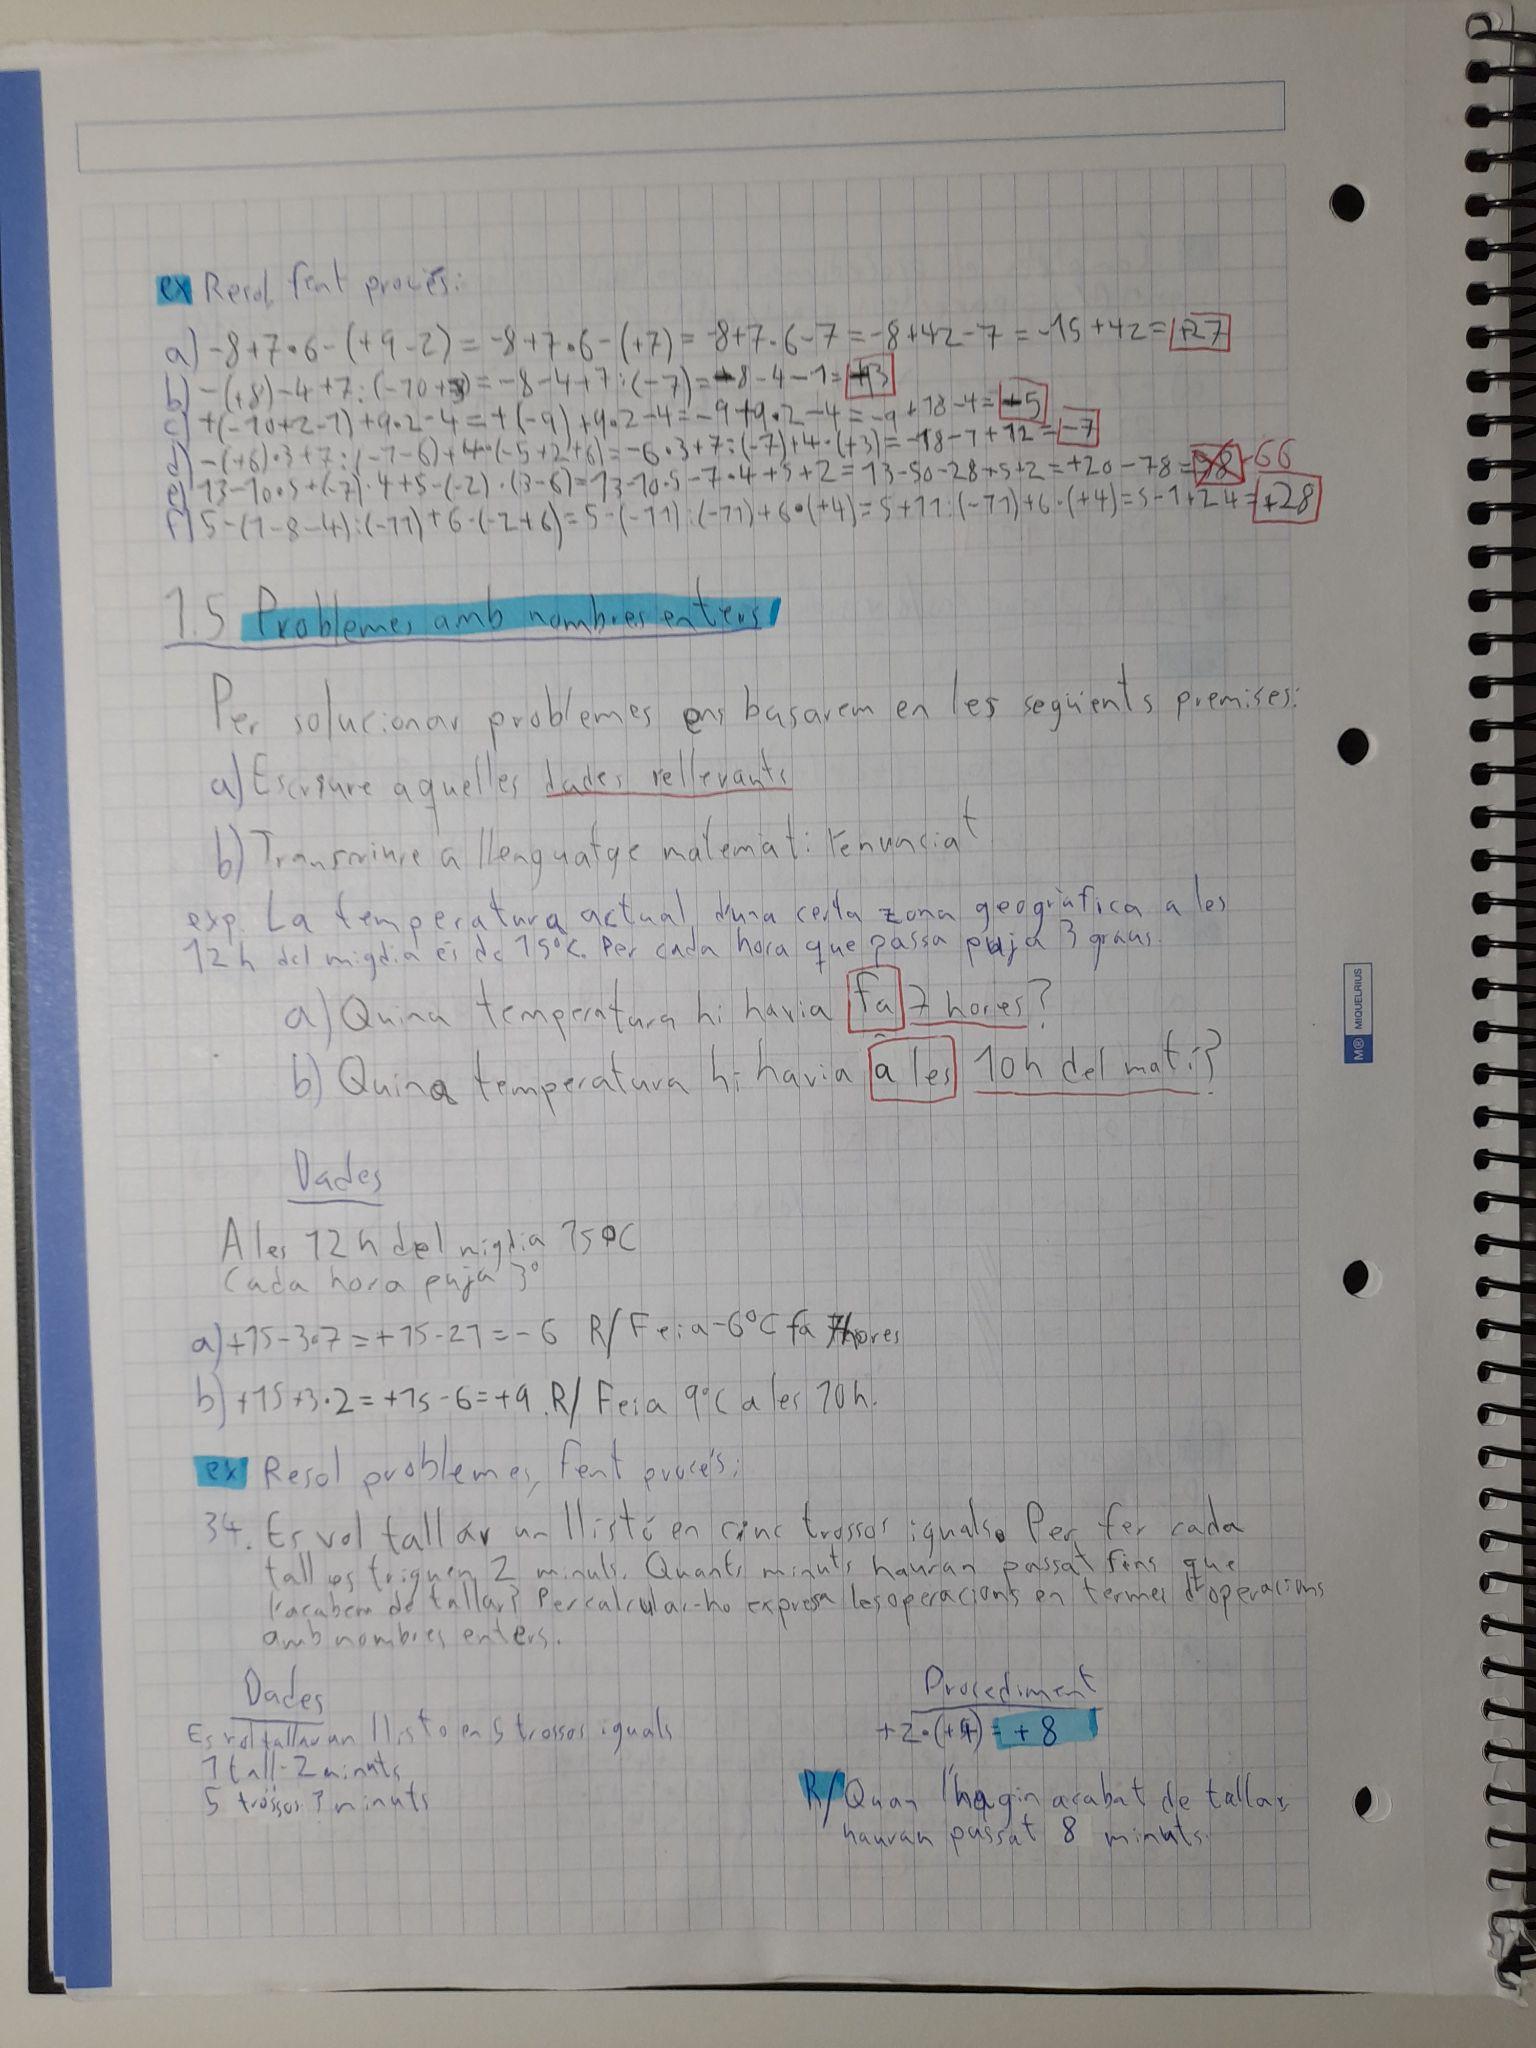 ex Resol fent procés:
a) -8+7·6-(+9-2) = -8+7·6-(+7) = -8+7·6-7 = -8+42-7 = -15+42= +27
b) -(+8)-4+7:(-10+3)= -8-4+7:(-7) = -8-4-1= -13
c) +(-10+2-1)+9·2-4=+(-9)+9·2-4=-9+9·2-4=-9+18-4= +5
d) -(+6)·3+7:(-1-6)+4·(-5+2+6)=-6·3+7:(-7)+4·(+3)=-18-1+12=-7
e) 13-10·5+(-7)·4+5-(-2)·(3-6)=13-10·5-7·4+5+2=13-50-28+5+2=+20-78= -66
f) 5-(1-8-4):(-11)+6·(-2+6)=5-(-11):(-11)+6·(+4)=5+11:(-11)+6·(+4)=5-1+24=+28
1.5 Problemes amb nombres enters
Per solucionar problemes ens basarem en les següents premises:
a) Escriure aquelles dades rellevants
b) Transcriure a llenguatge matemàti l'enunciat
exp. La temperatura actual d'una certa zona geogràfica a les
12h del migdia és de 15ºC. Per cada hora que passa puja 3 graus.
a) Quina temperatura hi havia fa 7 hores?
b) Quina temperatura hi havia a les 10h del matí?
Dades
A les 12h del migdia 15ºC
Cada hora puja 3º
a) +15-3·7=+15-21=-6 R/ Feia -6ºC fa 7 hores
b) +15+3·2=+15-6=+9. R/ Feia 9ºC a les 10h.
ex Resol problemes, fent procés:
34. Es vol tallar un llistó en cinc trossos iguals. Per fer cada
tall es triguen 2 minuts. Quants minuts hauran passat fins que
l'acabem de tallar? Per calcular-ho expresa les operacions en termes d'operacions
amb nombres enters.
Dades
Es vol tallar un llisto en 5 trossos iguals
1 tall-2 minuts
5 trossos ? minuts
Procediment
+2·(+4)=+8
R/ Quan l'hagin acabat de tallar,
hauran passat 8 minuts.
M® MIQUELRIUS